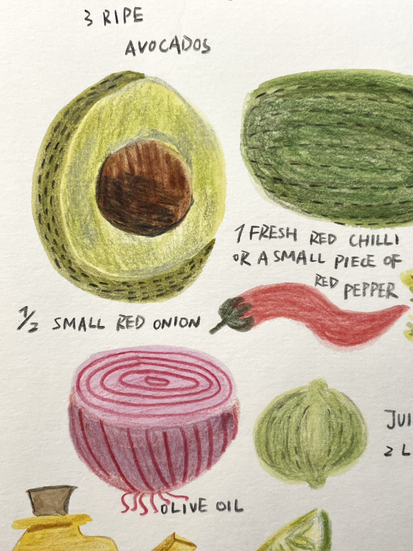 3 RIPE
AVOCADOS
1 FRESH RED CHILLI
OR A SMALL PIECE OF
RED PEPPER
1/2 SMALL RED ONION
JUI
2 L
OLIVE OIL